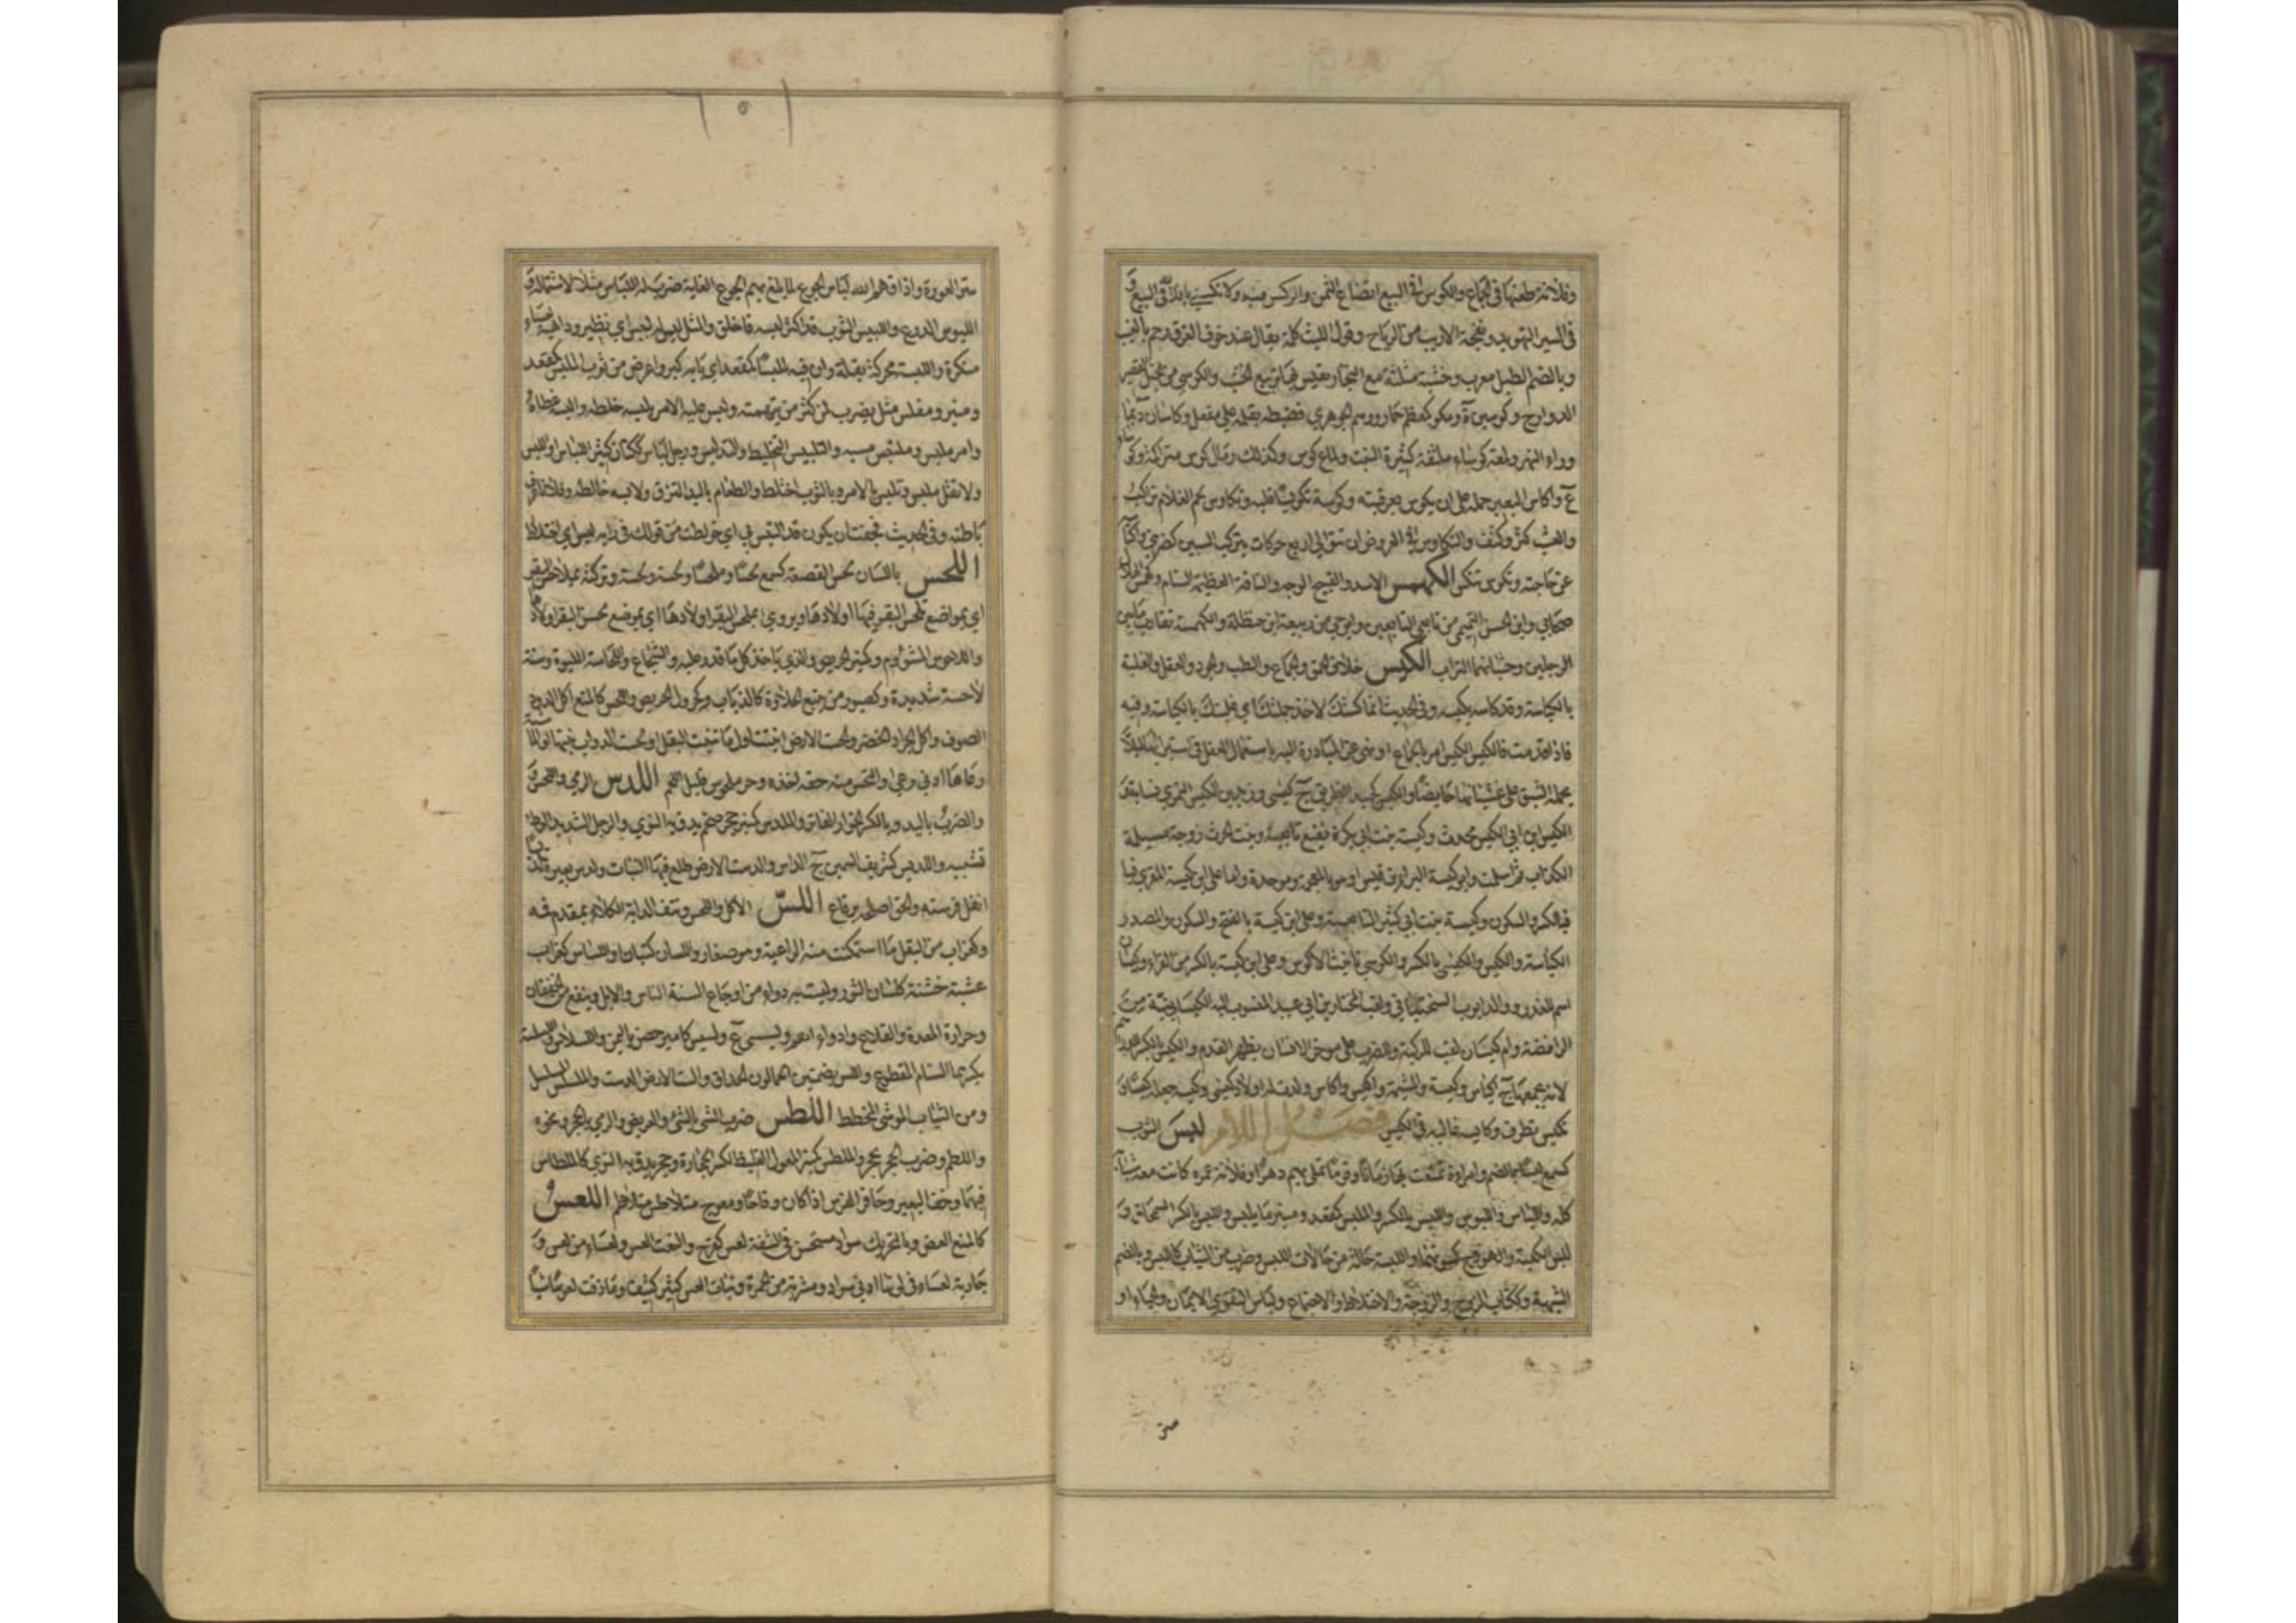 وفلانة طعنها في الجماع والكوس في البيع اتضاع الثمن والوكس فيه ولا تكسني يا فلان في البيع و
في السير التهويد ونيحة الازيب من الرياح وقول الليث كلمة يقال عند خوف الغرق رجم بالغيب
وبالضم الطبل معرب وخشبة مثلثة مع النجار يقيس بها تربيع الخشب والكوسي من الخيل القصير
الدوارج وكوسين ة ومكوس كمعظم حمار ووهم الجوهري فضبطه بقلمه على مفعل وكاسان د بما
وراء النهر ولمعة كوساء ملتفة كثيرة النبت ولماع كوس وكذلك رمال كوس متراكمة وكوساء
ع واكاس البعير حمله على ان يكوس بعرقبته وكوسه تكويسا قلبه وتكاوس لحم الغلام تراكب
والعشب كثر وكثف والتكاوس في العروض ان تتوالى اربع حركات بتركب السببين كضربني واكتاس
عن حاجته وتكوس تنكس الكهمس الاسد والقبيح الوجه والناقة العظيمة السنام وكهمس الهلالي
صحابي وابن الحسن التميمي من تابعي التابعين وابو حي من ربيعة ابن حنظلة والكهمسة تقارب ما بين
الرجلين وحثيانهما التراب الكيس خلاف الحمق والجماع والطب والجود والعقل والغلبة
بالكياسة وقد كاسه يكيسه وفي الحديث انما كستك لاخذ جملك اي غلبتك بالكياسة وفيه
فاذا قدمت فالكيس الكيس امر بالجماع او نهي عن المبادرة اليه باستعمال العقل في استبرائها لئلا
يحمله الشبق على غشيانها حائضا والكيس كجيد الظريف ج كيسى وزيد بن الكيس النمري نسابة و
الكيس ابن ابي الكيس محدث وكيسة بنت ابي بكرة نفيع تابعية وبنت الحرث زوجة مسيلمة
الكذاب ثم اسلمت وابو كيسة البراء بن قيس او هو بالمعجمة وموحدة واما علي ابن كيسة المقري فبا
فبالكسر والسكون وكيسة بنت ابي كثير التابعية وعلي ابن كيسة بالفتح والسكون والمصدر
الكياسة والكيس والكيسى بالكسر والكوسى تانيث الاكوس وعلي ابن كيسة بالكسر من القراء وكيسان
اسم للغدر ووالد ايوب السختياني ولقب المختار بن ابي عبيد المنسوب اليه الكيسانية من
الرافضة وام كيسان لقب للركبة والضرب على مؤخر الانسان بظهر القدم والكيس بالكسر للدراهم
لانه يجمعها ج اكياس وكيسة والمشيمة واكيس واكاس ولد له اولاد كيسى وكيسه جعله كيسا و
تكيس تظرف وكايسه غالبه في الكيس فصل اللام لبس الثوب
كسمع لبسا بالضم وامراة تمتعت بها زمانا وقوما تملى بهم دهرا وفلانة عمره كانت معه شبابه
كله واللباس واللبوس واللبس بالكسر والملبس كمقعد ومنبر ما يلبس واللبس بالكسر السمحاق و
لبس الكعبة والهودج كسوتهما واللبسة حالة من حالات اللبس وضرب من الثياب كاللبس وبالضم
الشبهة وككتاب الزوج والزوجة والاختلاط والاجتماع ولباس التقوى الايمان والحياء او
ستر
ستر العورة واذاقهم الله لباس الجوع لما بلغ بهم الجوع الغاية ضرب له اللباس مثلا لاشتماله و
اللبوس الدرع واللبيس الثوب قد اكثر لبسه فاخلق والمثل ليس له لبيس اي نظير وداهية لبساء
منكرة واللبسة محركة بقلة وان فيه لملبسا كمقعد اي ما به كبر واعرض من ثوب الملبس كمقعد
ومنبر ومفلس مثل يضرب لمن كثر من يتهمه ولبس عليه الامر يلبسه خلطه والبسه غطاه
وامر ملبس وملتبس مشتبه والتلبيس التخليط والتدليس ورجل لباس ككتان كثير اللباس او اللبس
ولا تقل ملبس وتلبس بالامر وبالثوب اختلط والطعام باليد التزق ولابسه خالطه وفلانا عرف
باطنه وفي الحديث فخفت ان يكون قد التبس بي اي خولطت من قولك في رايه لبس اي اختلاط
اللحس باللسان لحس القصعة كسمع لحسا وملحسا ولحسة ولحسة وتركته بملاحس البقر
اي بمواضع تلحس البقر فيها اولادها ويروى بملحس البقر اولادها اي بموضع لحس البقر اولادها
واللاحوس المشؤوم وكمنبر الحريص والذي ياخذ كل ما قدر عليه والشجاع واللحاسة اللبوة وسنة
لاحسة شديدة وكصبور من يتتبع الحلاوة كالذباب وكجرول الحريص واللحس كالمنع اكل الدود
الصوف واكل الجراد الخضر والحست الارض انبتت اول ما تنبت البقل او لحست الدواب نبتها او
وماها ادنى رعي والتحس منه حقه اخذه وحر ملحوس قليل اللحم اللدس الرمي واللحس و
والضرب باليد وبالكسر الخوار الفاتر والملدس كمنبر حجر ضخم يدق به النوى والرجل الشديد الوطء
تشبيه واللديس كشريف السمين ج الداس والدست الارض طلع فيها النبات ولدس بعيره تلديسا
انعل فرسنه والخف اصلحه برقاع اللس الاكل واللحس ونتف الدابة الكلاء بمقدم فيه
وكغراب من البقل ما استمكنت منه الراعية وهو صغار واللسان كتبان او اللساس كغراب
عشبة خشنة كلسان الثور وليست به دواء من اوجاع السنة الناس والابل وينفع من الخفقان
وحرارة المعدة والقلاع وادواء الفم ولسيسى ع ولسيس كامير حصن باليمن واللسلاس واللسلسة
بكسرهما السنام المقطع واللسس بضمتين الحمالون الحذاق والست الارض الدست والملسلس المسلسل
ومن الثياب الموشى المخطط اللطس ضرب الشيء بالشيء العريض والرمي بالحجر ونحوه
واللطم وضرب الحجر بحجر والملطس كمنبر المعول الغليظ لكسر الحجارة وحجر يدق به النوى كالملطاس
فيهما وخف البعير وحافر الفرس اذا كان وقاحا وموج متلاطس متلاطم اللعس
كالمنع العض وبالتحريك سواد مستحسن في الشفة لعس كفرح والنعت العس ولعساء من لعس و
جارية لعساء في لونها ادنى سواد ومشربة من الحمرة ونبات العس كثير كثيف وما ذقت لعوسا شيا